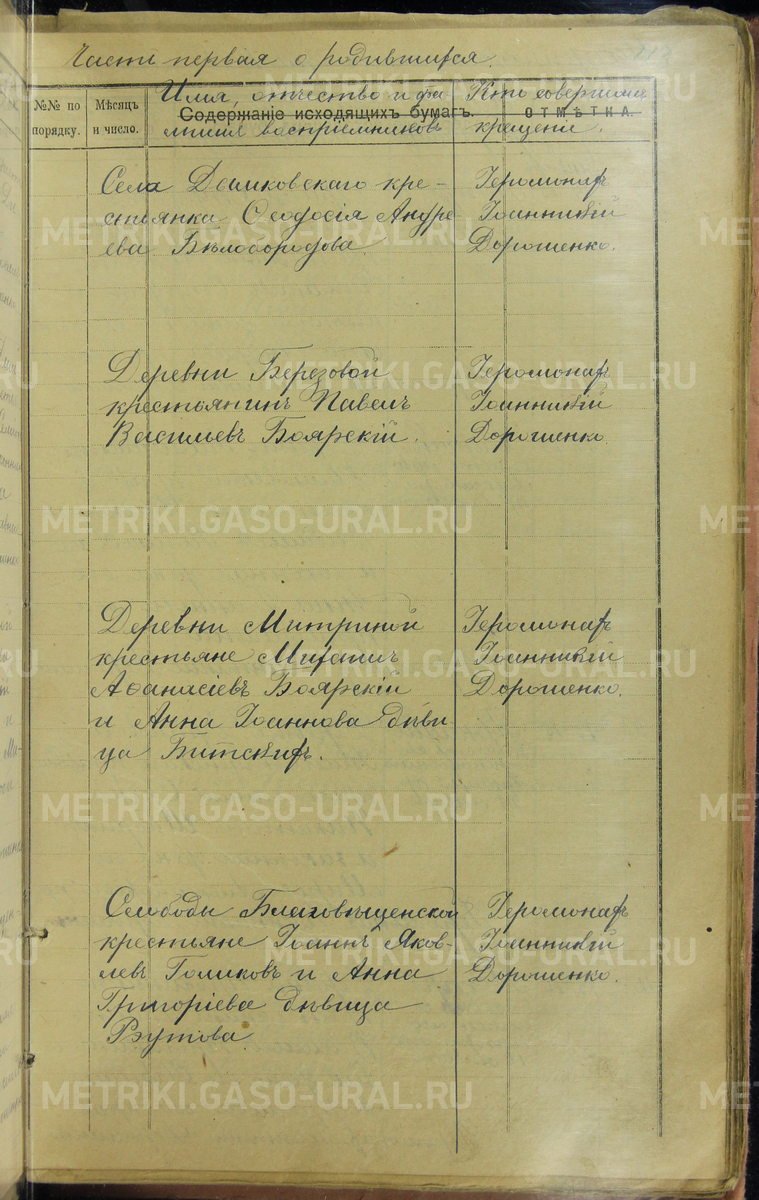 Часть первая о родившихся.
№№ по порядку.
Мѣсяцъ и число.
Имя, отчество и фа-
Содержаніе исходящихъ бумагъ.
милія воспріемниковъ
Кто совершалъ
ОТМѢТКА.
крещеніе.
Села Дамковскаго кре-
стьянка Ѳеодосія Андре-
ева Бѣлобородова.
Іеромонах
Іоанникій
Дорошенко.
Деревни Березовой
крестьянинъ Павелъ
Васильевъ Боярскій.
Іеромонах
Іоанникій
Дорошенко
Деревни Митриной
крестьяне Михаилъ
Аѳанасіевъ Боярскій
и Анна Іоаннова дѣви-
ца Битскихъ.
Іеромонахъ
Іоанникій
Дорошенко.
Слободы Благовѣщенской
крестьяне Іоаннъ Яков-
левъ Голиковъ и Анна
Григоріева дѣвица
Рѣутова
Іеромонах
Іоанникій
Дорошенко.
METRIKI.GASO-URAL.RU